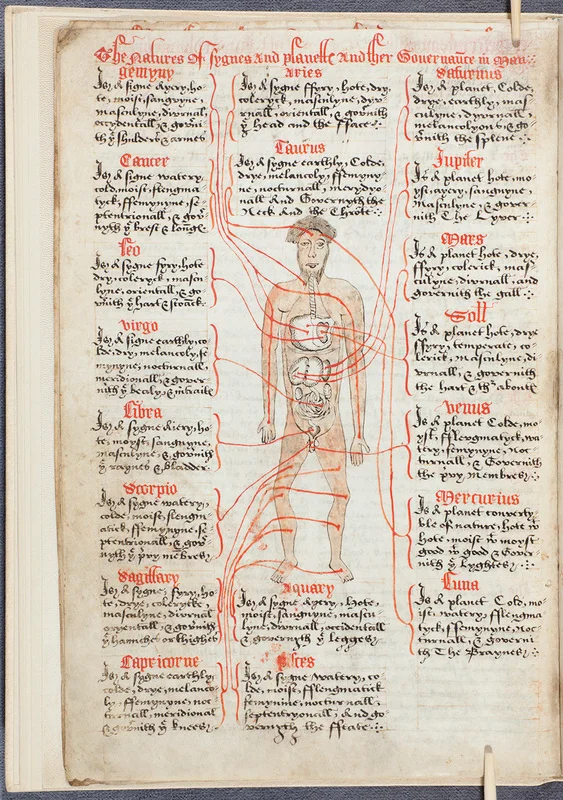 The Natures Of Sygnes And planett And ther Governaunce in Man
gemyny
Is A signe Ayery, ho-
te, moist, sangvyne,
masculyne, diurnal,
occydentall, & gov'nith
yᵉ shulders & armes
Cancer
Is A signe watery,
cold, moist, flengma-
tyck, ffemynyne, se-
ptentrionall, & gov'
nyth yᵉ brest & longe
Leo
Is A sygne fyry, hote
dry, coleryck, mascu-
lyne, orientall, & go-
v'nith yᵉ hart & stoack
virgo
Is A signe earthly, co-
lde, dry, melancoly, fe-
mynyne, nocturnall,
meridionall, & gover-
nith yᵉ bealy, & intraile
Libra
Is A sygne Aiery, ho-
te, moyst, sangvyne,
masculyne, & gov'nith
yᵉ raynes & bladder
Scorpio
Is A sygne watery,
colde, moist, flengm-
atick, ffemynyne, se-
ptentrionall, & gov'
nyth yᵉ pryvy mēbres
Sagittary
Is A sygne fyry, ho-
te, drye, colerycke,
masculyne, diurnal
oryentall, & gov'nith
yᵉ hanches or thighes
Capricorne
Is A sygne earthly,
colde, drye, melanco-
ly, ffemynyne, noc-
turnall, meridional
& gov'nith yᵉ knees
Aries
Is A sygne ffyry, hote, dry,
coleryck, masculyne, dyv-
rnall, orientall, & gov'nith
yᵉ head and the fface
Taurus
Is A sygne earthly, Colde,
drye, melancoly, ffemyny-
ne, nocturnall, merydyo-
nall And Governyth the
Neck And the Throte
Aquary
Is A sygne Ayery, Hote,
moist, sangvyne, mascu-
lyne, diurnall, occidentall
& governyth yᵉ legges
Pisces
Is A sygne Watery, co-
lde, moist, fflengmatick
femynine, nocturnall,
septentryonall, And go-
vernyth the ffeate
Saturnus
Is A planet, Colde,
drye, earthly, mas
culyne, dyvrnall
melancolyous, & go-
vrnith the splene
Jupiter
Is A planet hote, mo-
yst, ayery, sangvyne,
masculyne, & gover-
nith The Lyver
Mars
Is A planet hote, drye,
ffyry, colerick, mas-
culyne, diurnall, and
governith the gall
Soll
Is A planet hote, drye
ffyry, temperate, co-
lerick, masculyne, di
vrnall, & governith
the hart &
Venus
Is A planet Colde, mo-
yst, fflevgmatyck, wa-
tery, femynyne, noc-
turnall, & Governith
the pryvy membres
Mercurius
Is A planet converty-
ble of nature, Hote wᵗ
hote, moist wᵗ moyst
good wᵗ good & Gover-
nith yᵉ Lyghtes
Luna
Is A planet Cold, mo-
ist, watery, fflengma
tyck, ffemynyne, Noc-
turnall, & governi
th The Braynes